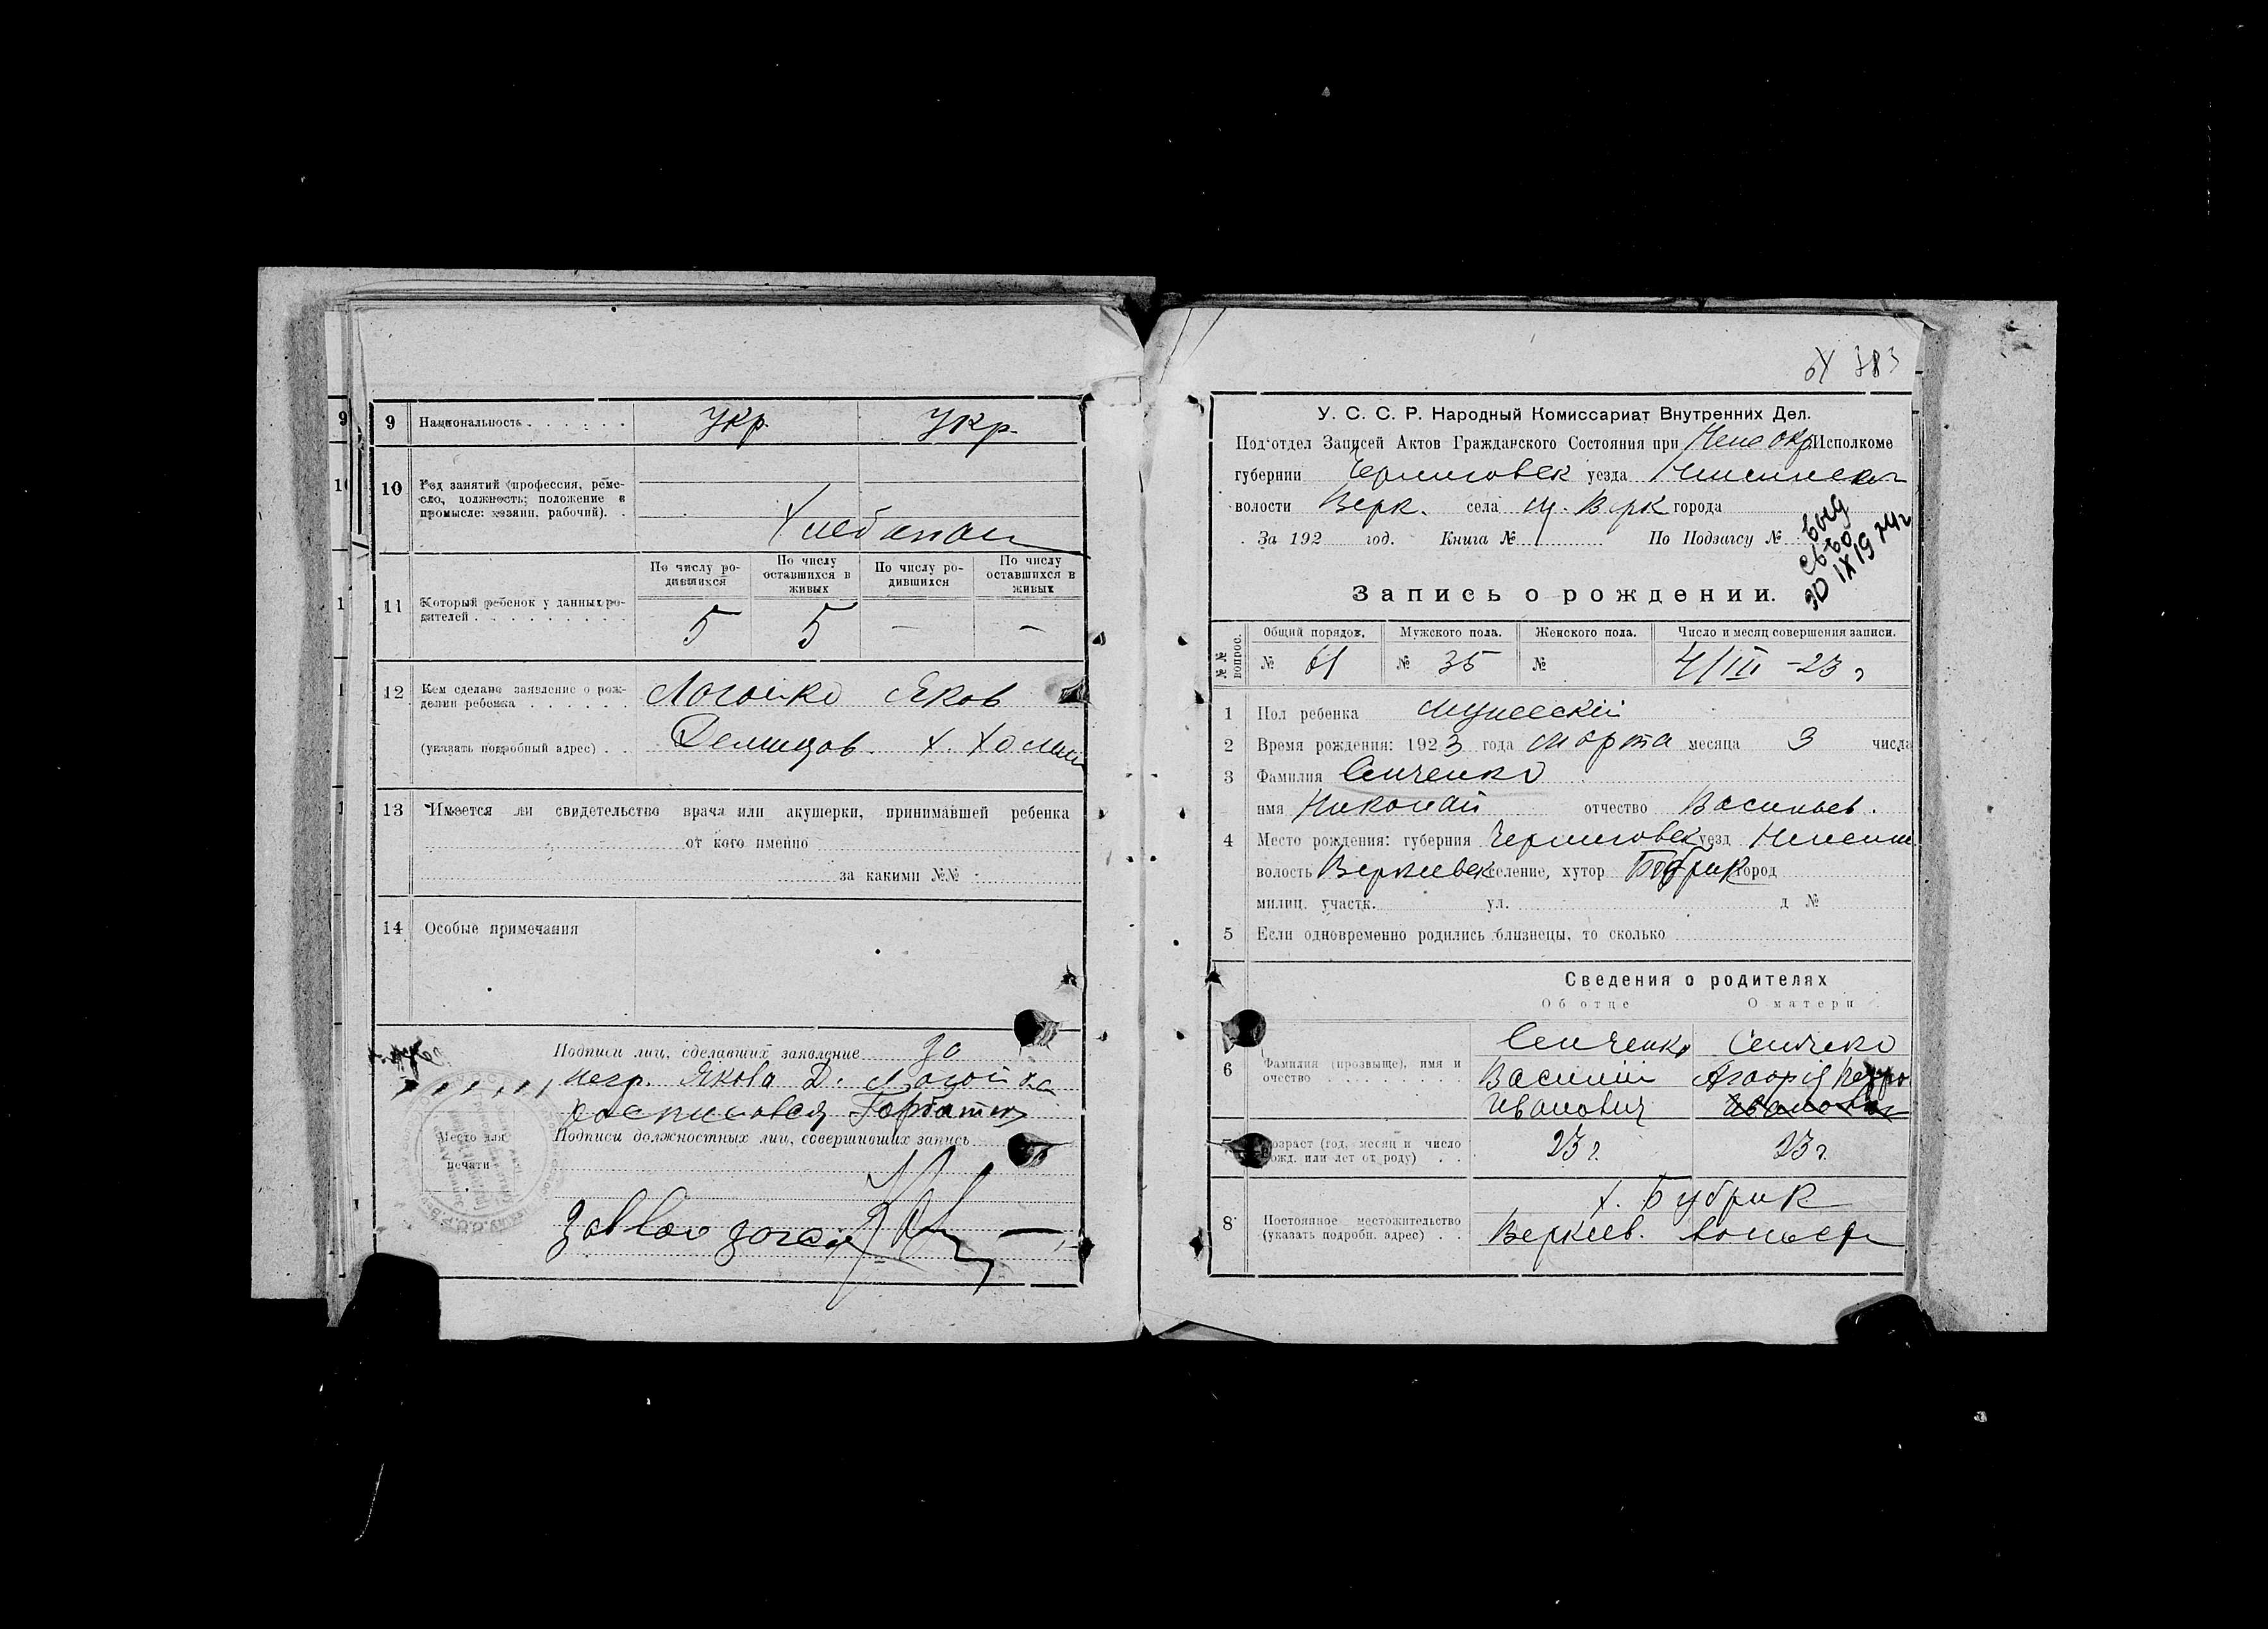 9 Национальность . . . . . . Укр. Укр.
10 Род занятий (профессия, реме-
сло, должность; положение в
промысле: хозяин, рабочий). .
Хлебопаш
По числу ро-
дившихся По числу
оставшихся в
живых По числу ро-
дившихся По числу
оставшихся в
живых
11 Который ребенок у данных ро-
дителей . . . . . . . . . 5 5 — —
12 Кем сделано заявление о рож-
дении ребенка . . . . . . Яков
(указать подробный адрес) . .
13 Имеется ли свидетельство врача или акушерки, принимавшей ребенка
от кого именно
за какими №№
14 Особые примечания
Подписи лиц, сделавших заявление за
негр. Якова Д.
росписовся
Подписи должностных лиц, совершивших запись
Место для
печати
383
У. С. С. Р. Народный Комиссариат Внутренних Дел.
Под'отдел Записей Актов Гражданского Состояния при Исполкоме
губернии Черниговск уезда
волости Верк. села м. Верк города
За 192 год. Книга № По Подзагсу №
выд
св-во
30 IX 1974г
Запись о рождении.
№ № вопрос. Общий порядок. Мужского пола. Женского пола. Число и месяц совершения записи.
№ 61 № 35 № 4/III -23 г
1 Пол ребенка мужеский
2 Время рождения: 1923 года марта месяца 3 числа
3 Фамилия Сенченко
имя Николай отчество Васильев.
4 Место рождения: губерния Черниговск уезд Нежин
волость Веркиевск селение, хутор Бобрик город
милиц. участк. ул. д №
5 Если одновременно родились близнецы, то сколько
Сведения о родителях
Об отце О матери
6 Фамилия (прозвыще), имя и
очество . . . . . . . .
Сенченко Сенченко
Василий
Иванович
Возраст (год, месяц и число
рожд. или лет от роду) . . 23 г. 23 г.
х. Бубрик
8 Постоянное местожительство
(указать подробн. адрес) . . Веркиев. волости